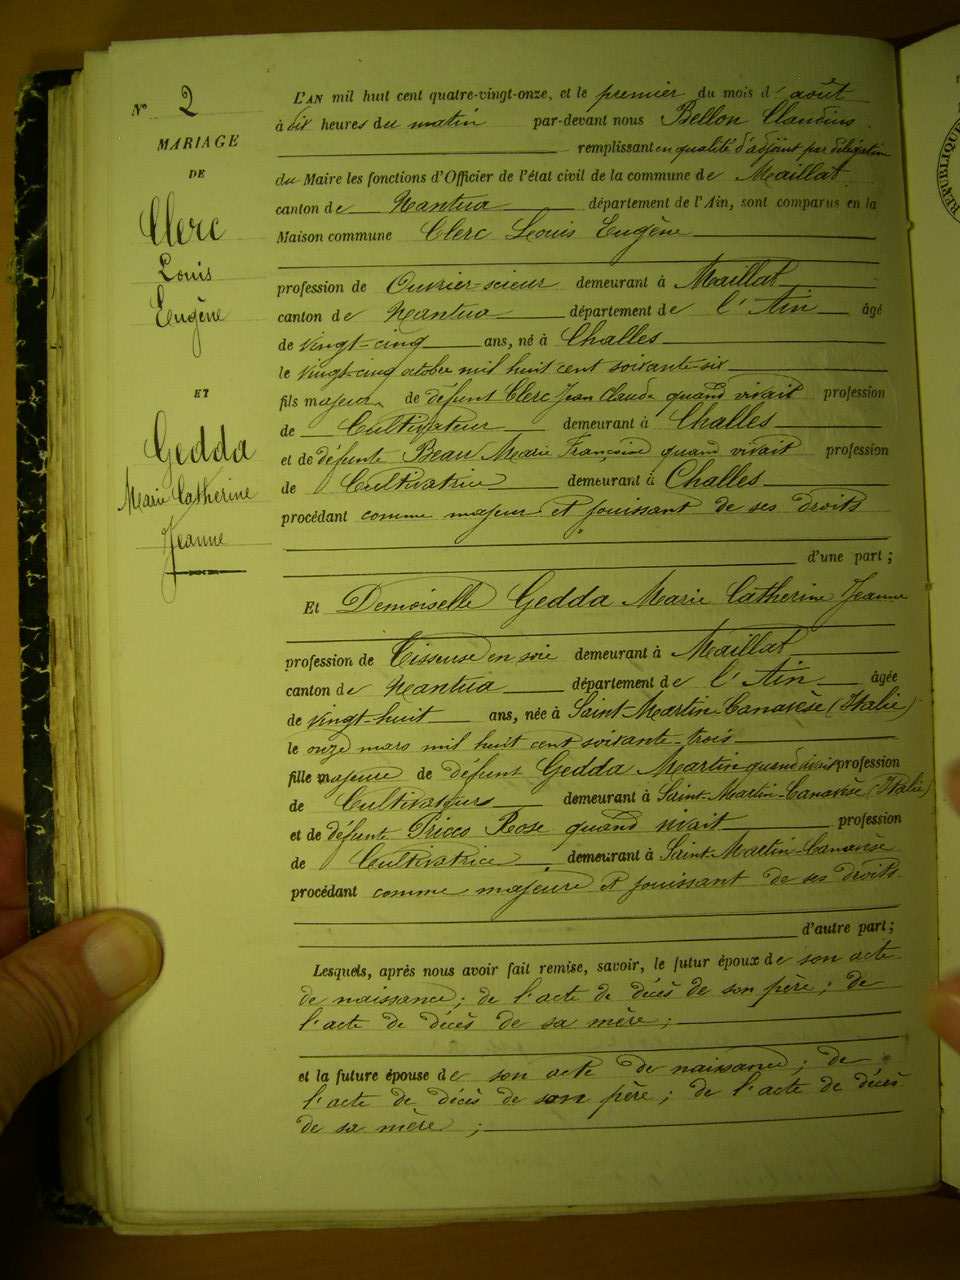 N° 2
MARIAGE
DE
Clerc
Louis
Eugène
ET
Gedda
Marie Catherine
Jeanne
L'AN mil huit cent quatre-vingt-onze, et le premier du mois d'août
à dix heures du matin par-devant nous Bellon Claudius
remplissant en qualité d'adjoint par délégation
du Maire les fonctions d'Officier de l'état civil de la commune de Maillat
canton de Nantua département de l'Ain, sont comparus en la
Maison commune Clerc Louis Eugène
profession de Ouvrier-scieur demeurant à Maillat
canton de Nantua département de l'Ain âgé
de vingt-cinq ans, né à Challes
le vingt-cinq octobre mil huit cent soixante-six
fils majeur de défunt Clerc Jean Claude quand vivait profession
de Cultivateur demeurant à Challes
et de défunte Beau Marie Françoise quand vivait profession
de Cultivatrice demeurant à Challes
procédant comme majeur et jouissant de ses droits
d'une part ;
Et Demoiselle Gedda Marie Catherine Jeanne
profession de Tisseuse en soie demeurant à Maillat
canton de Nantua département de l'Ain âgée
de vingt-huit ans, née à Saint-Martin-Canavèse (Italie)
le onze mars mil huit cent soixante-trois
fille majeure de défunt Gedda Martin quand vivait profession
de Cultivateur demeurant à Saint-Martin-Canavèse (Italie)
et de défunte Pricco Rose quand vivait profession
de Cultivatrice demeurant à Saint-Martin-Canavèse
procédant comme majeure et jouissant de ses droits
d'autre part ;
Lesquels, après nous avoir fait remise, savoir, le futur époux de son acte
de naissance ; de l'acte de décès de son père ; de
l'acte de décès de sa mère ;
et la future épouse de son acte de naissance ; de
l'acte de décès de son père ; de l'acte de décès
de sa mère ;
REPUBLIQUE